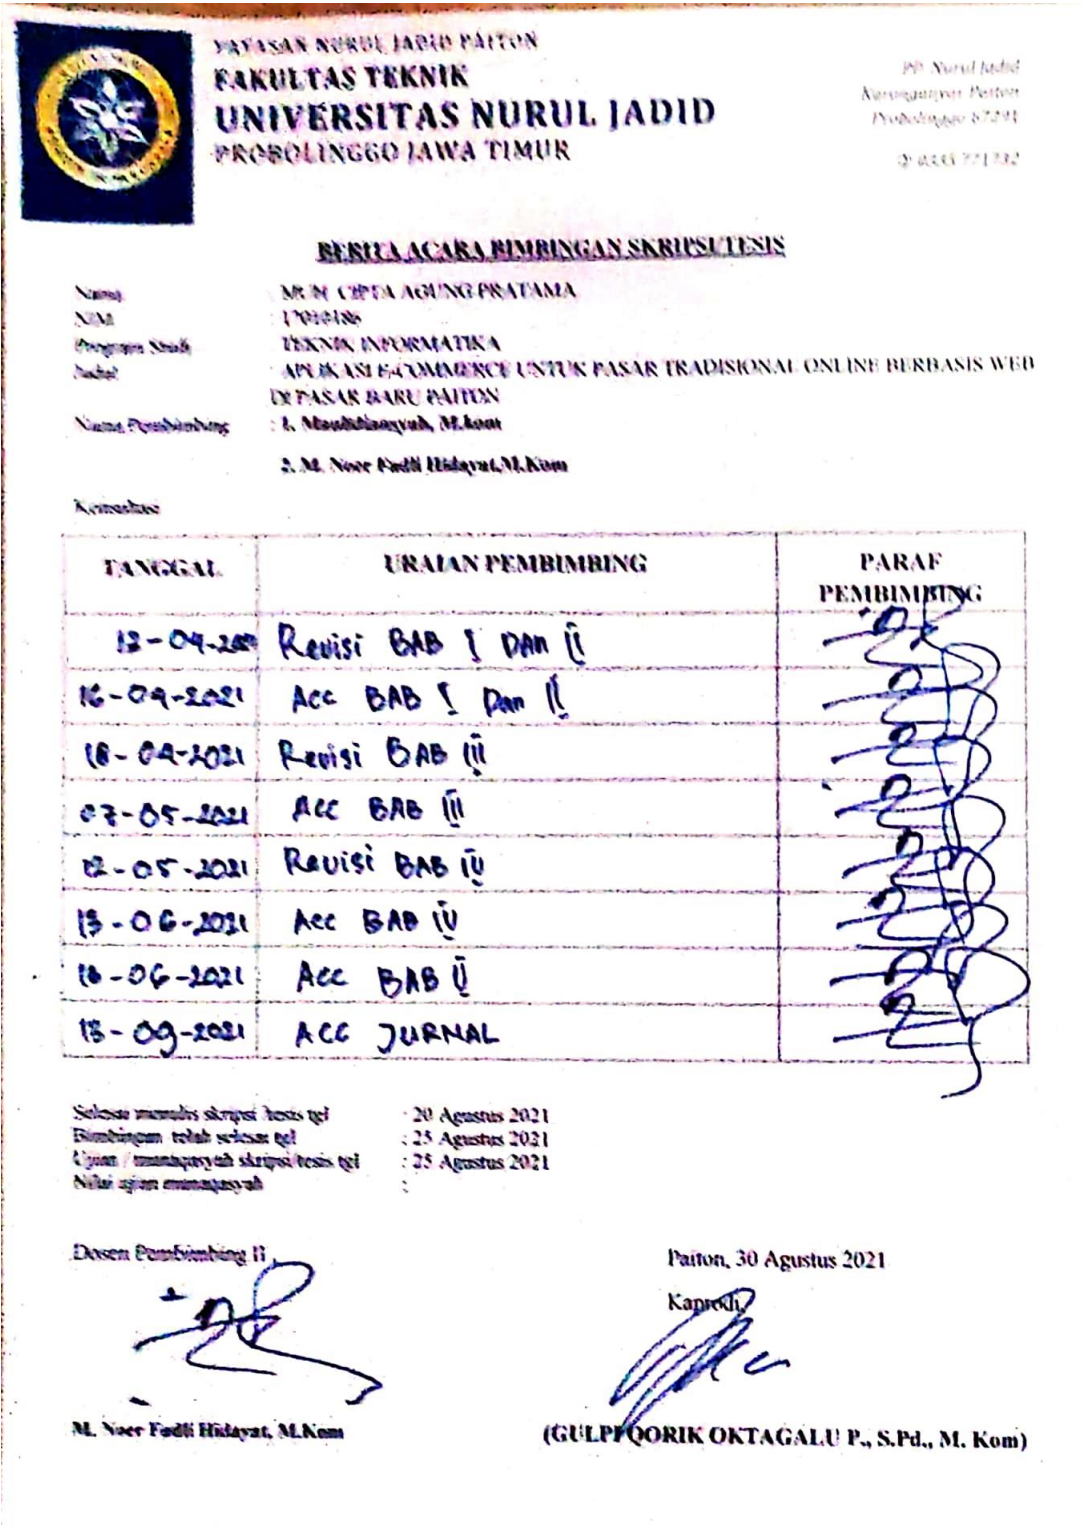 YAYASAN NURUL JADID PAITON
FAKULTAS TEKNIK
UNIVERSITAS NURUL JADID
PROBOLINGGO JAWA TIMUR
PP. Nurul Jadid
Karanganyar Paiton
Probolinggo 67291
0335 771732
BERITA ACARA BIMBINGAN SKRIPSI/TESIS
Nama : MUH. CIPTA AGUNG PRATAMA
NIM :
Program Studi : TEKNIK INFORMATIKA
Judul : APLIKASI E-COMMERCE UNTUK PASAR TRADISIONAL ONLINE BERBASIS WEB
DI PASAR BARU PAITON
Nama Pembimbing : 1. M.kom
2. M. Noer Fadli Hidayat,M.Kom
Konsultasi
TANGGAL URAIAN PEMBIMBING PARAF
PEMBIMBING
Revisi BAB I DAN II
16-04-2021 Acc BAB I Dan II
18-04-2021 Revisi BAB III
07-05-2021 Acc BAB III
12-05-2021 Revisi BAB IV
13-06-2021 Acc BAB IV
18-06-2021 Acc BAB V
13-09-2021 ACC JURNAL
Selesai menulis skripsi /tesis tgl : 20 Agustus 2021
Bimbingan telah selesai tgl : 25 Agustus 2021
Ujian / munaqasyah skripsi/tesis tgl : 25 Agustus 2021
Nilai ujian munaqasyah :
Dosen Pembimbing II ,
Paiton, 30 Agustus 2021
Kaprodi,
M. Noer Fadli Hidayat, M.Kom
(GULPI QORIK OKTAGALU P., S.Pd., M. Kom)